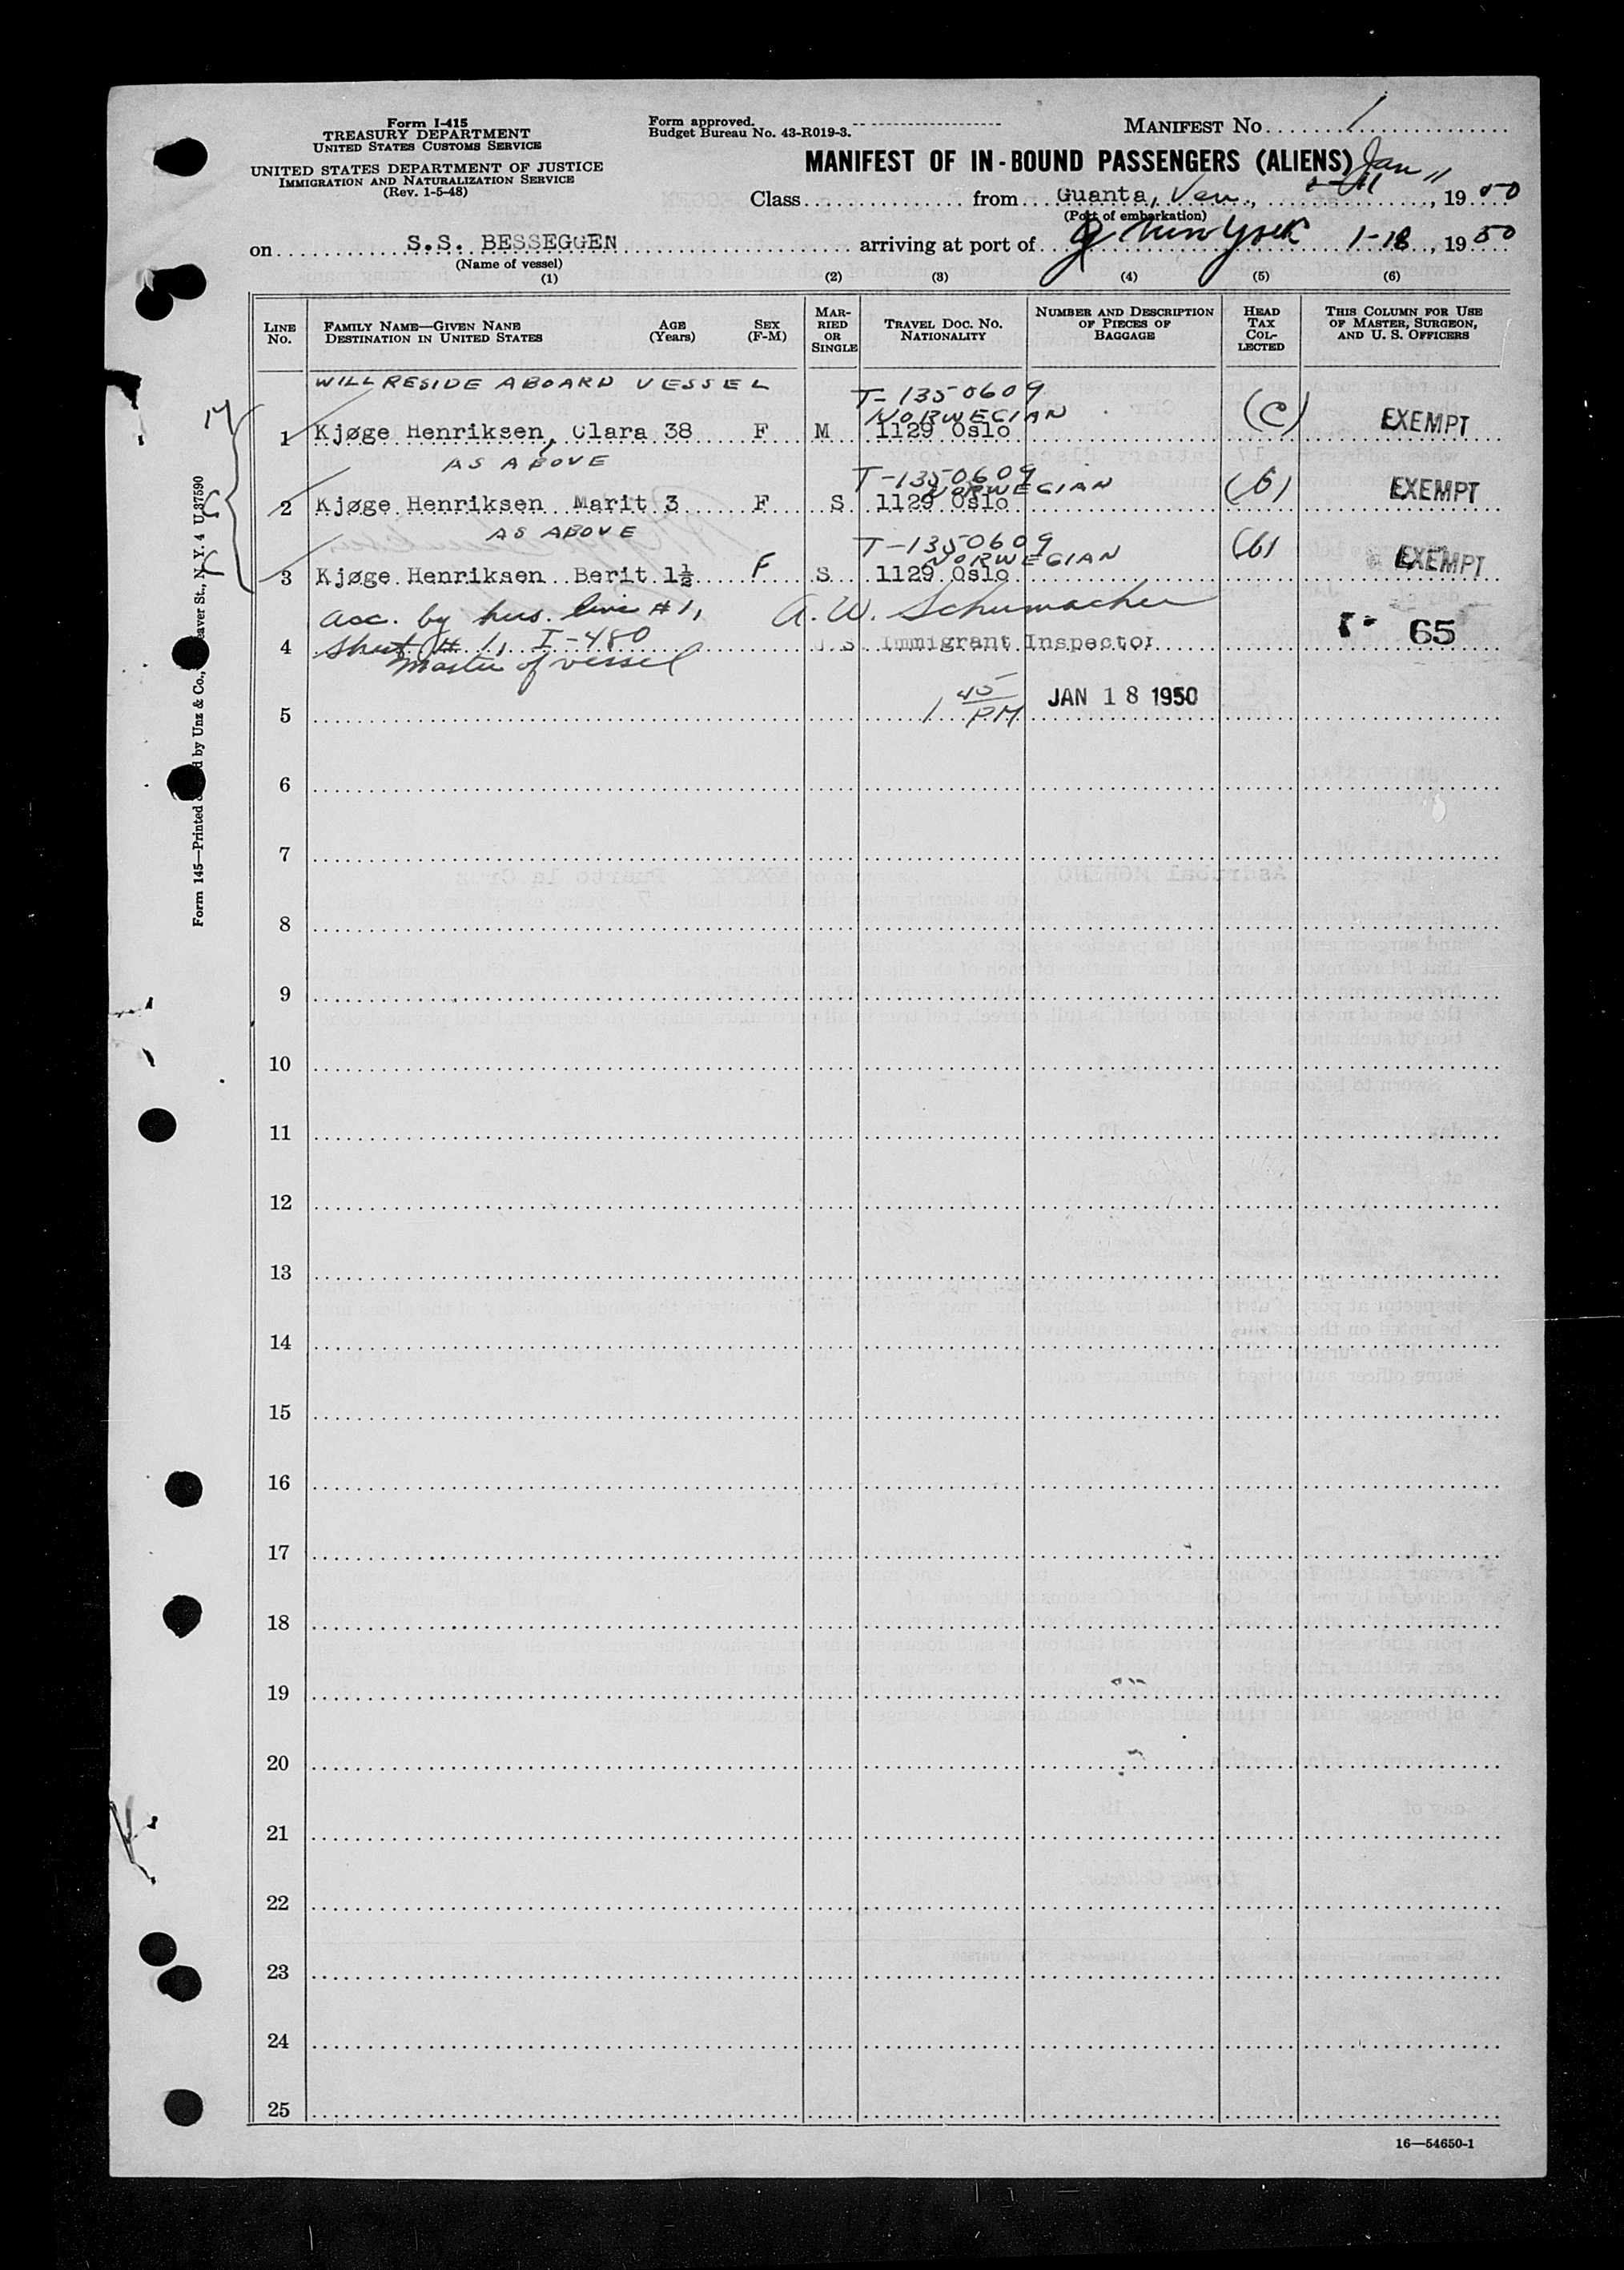 Form I-415
TREASURY DEPARTMENT
UNITED STATES CUSTOMS SERVICE
UNITED STATES DEPARTMENT OF JUSTICE
IMMIGRATION AND NATURALIZATION SERVICE
(Rev. 1-5-48)
Form approved.
Budget Bureau No. 43-R019-3.
MANIFEST NO. 1
MANIFEST OF IN-BOUND PASSENGERS (ALIENS)
Class from Guanta, Ven., Jan 11, 1950
(Port of embarkation)
on S.S. BESSEGGEN arriving at port of New York 1-18, 1950
(Name of vessel)
(1) (2) (3) (4) (5) (6)
LINE NO.
FAMILY NAME—GIVEN NANE
DESTINATION IN UNITED STATES
AGE (Years)
SEX (F-M)
MARRIED OR SINGLE
TRAVEL DOC. NO. NATIONALITY
NUMBER AND DESCRIPTION OF PIECES OF BAGGAGE
HEAD TAX COLLECTED
THIS COLUMN FOR USE OF MASTER, SURGEON, AND U. S. OFFICERS
WILL RESIDE ABOARD VESSEL T-1350609
NORWEGIAN
1 Kjøge Henriksen, Clara 38 F M 1129 Oslo (c) EXEMPT
AS ABOVE T-1350609
NORWEGIAN
2 Kjøge Henriksen Marit 3 F S 1129 Oslo (b) EXEMPT
AS ABOVE T-1350609
NORWEGIAN
3 Kjøge Henriksen Berit 1½ F S 1129 Oslo (b) EXEMPT
acc. by hus. line #1, A. W. Schumacher
4 sheet # 1, I-480 U.S. Immigrant Inspector 65
Master of vessel
5 1 45 PM JAN 18 1950
6
7
8
9
10
11
12
13
14
15
16
17
18
19
20
21
22
23
24
25
16—54650-1
Form 145—Printed by Unz & Co., eaver St., N. Y. 4 U 37590